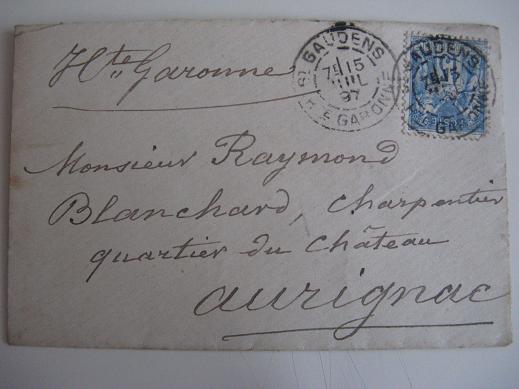 Hte Garonne
ST GAUDENS
7E 15
JUIL
97
HTE GARONNE
GAUDENS
15
Monsieur Raymond
Blanchard, charpentier
quartier du Château
aurignac